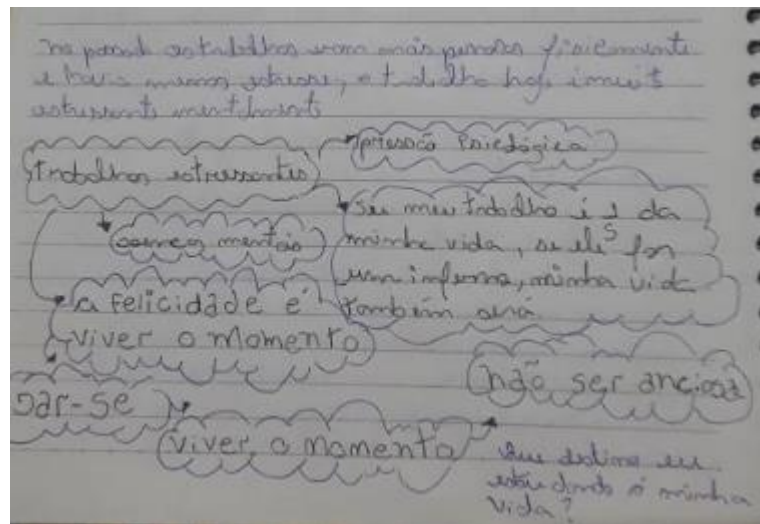 no passado os trabalhos eram mais pesados fisicamente
e havia menos estresse, o trabalho hoje é muito
estressante mentalmente
trabalhos estressantes
pressão Psicológica
doenças mentais
se meu trabalho é da
minha vida, se ele for
um inferno, minha vida
também será.
a felicidade é
viver o momento
não ser anciosa
dar-se
viver o momento
Que destino eu
estou dando a minha
vida?